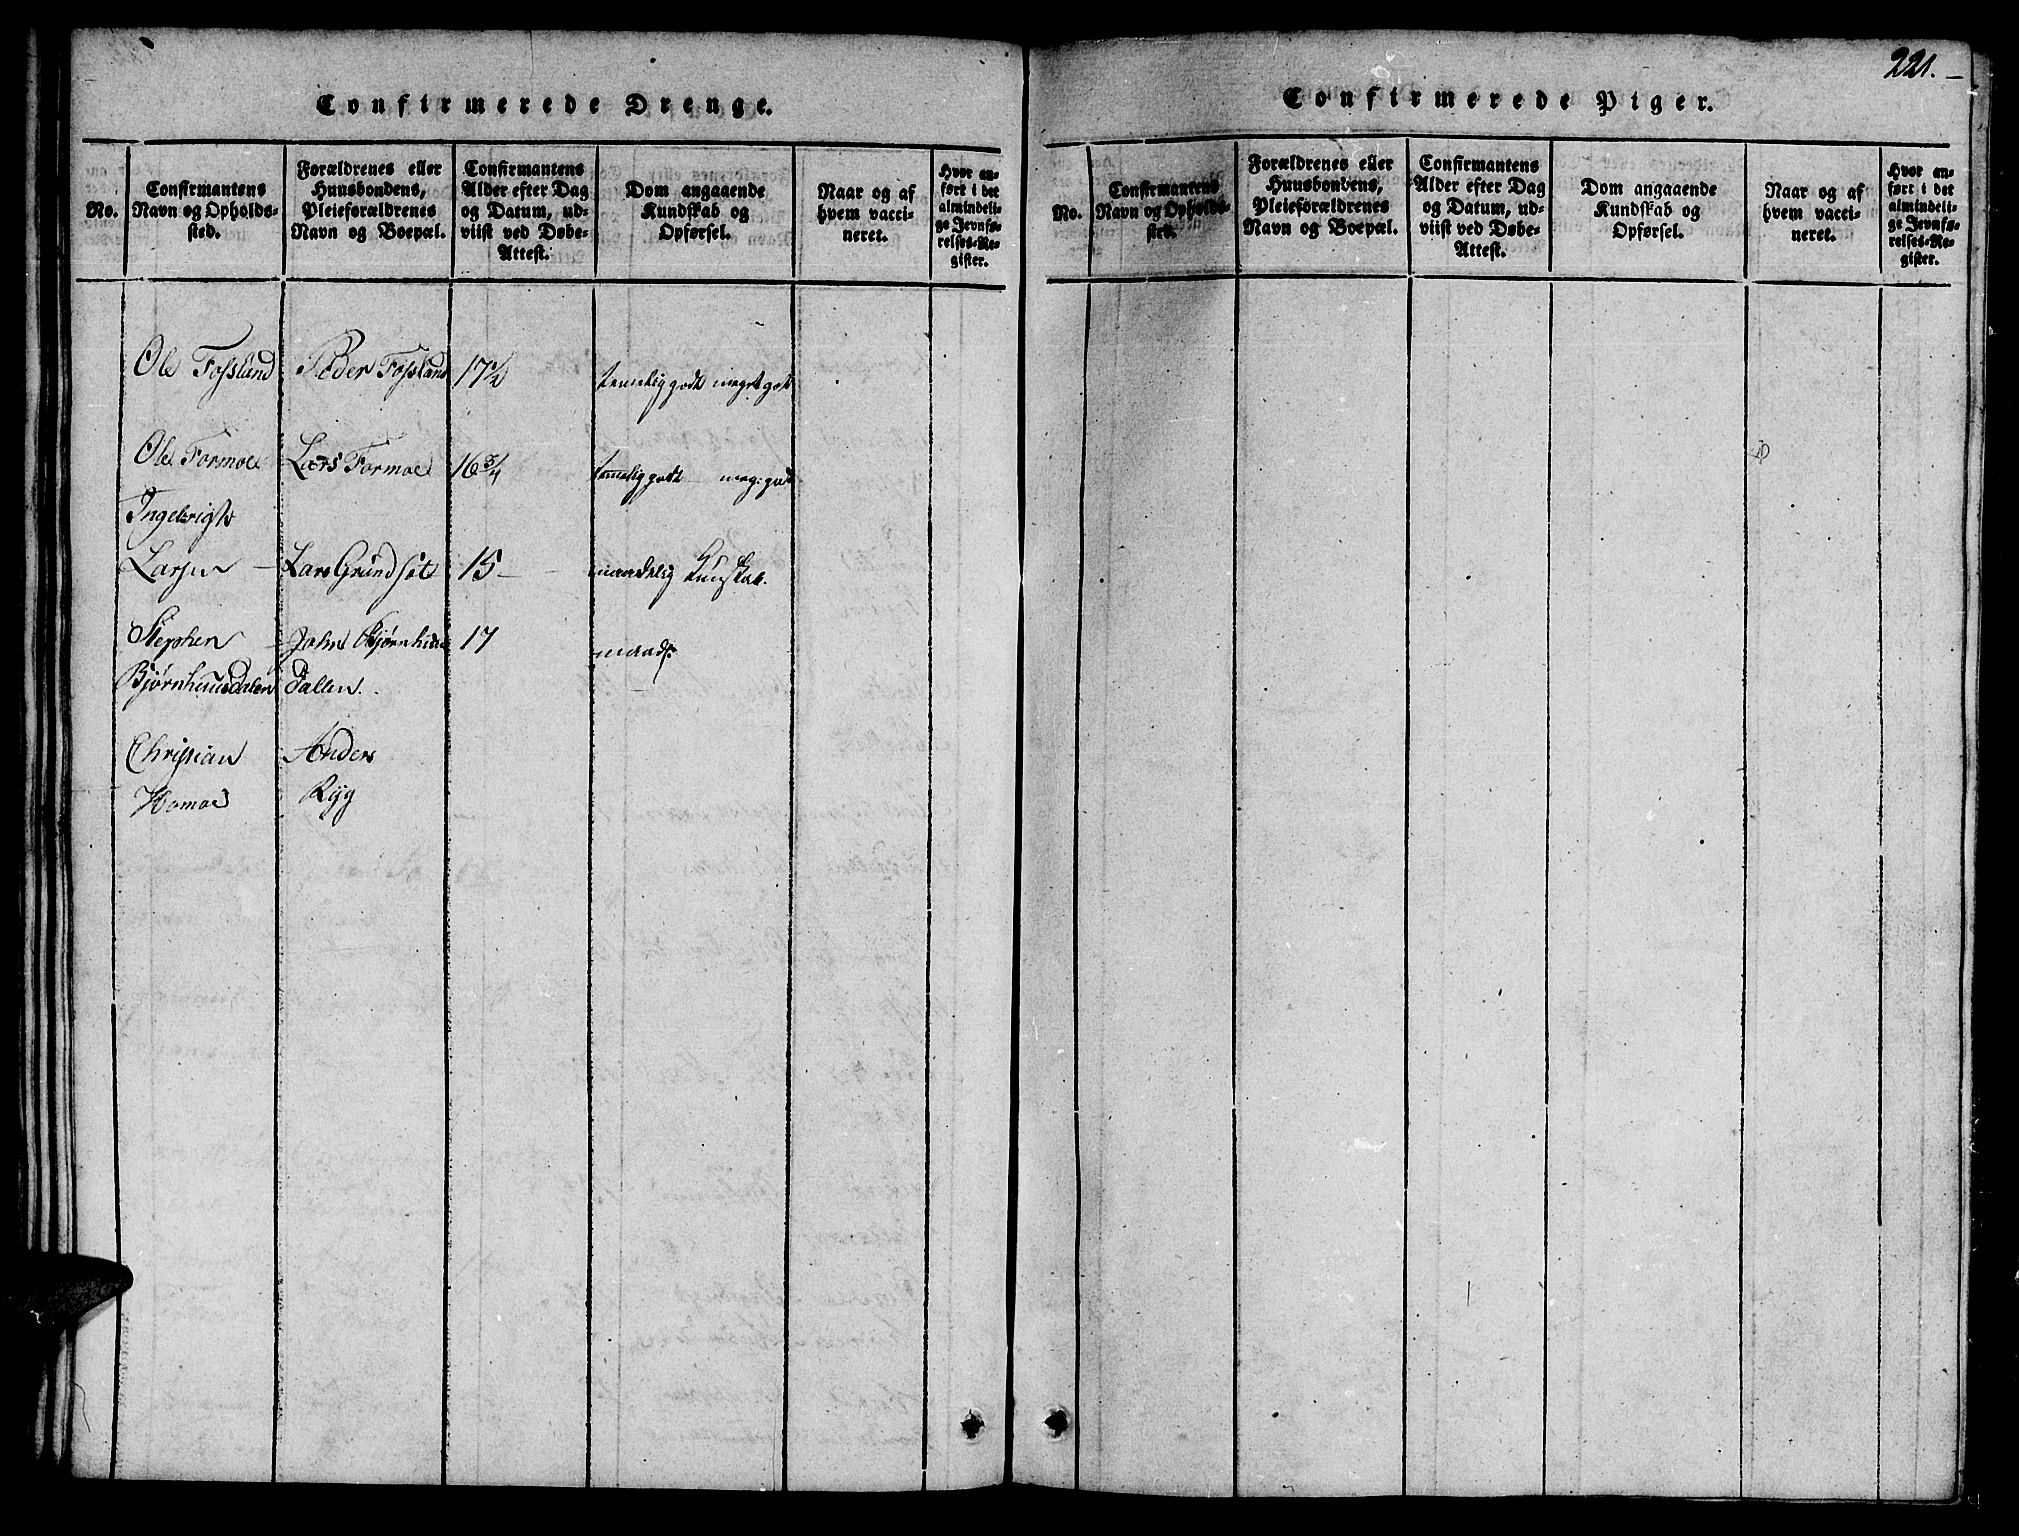 221.
Confirmerede Drenge.
No.
Confirmantens
Navn og Opholds-
sted.
Forældrenes eller
Huusbondens,
Pleieforældrenes
Navn og Boepæl.
Confirmantens
Alder efter Dag
og Datum, ud-
viist ved Døbe-
Attest.
Dom angaaende
Kundskab og
Opførsel.
Naar og af
hvem vacci-
neret.
Hvor an-
ført i det
almindeli-
ge Jevnfø-
relses-Re-
gister.
Ole Fossland Peder Fossland 17½ temelig godt meget godt
Ole Formoe Lars Formoe 16¾ temelig godt meg: godt
Ingebrigt
Larsen - Lars Grundset 15 - maadelig Kunskab.
Stephen - John Bjørnhuus 17 maad:
Bjørnhuusdalen dallen.
Christian Anders
Homoe Ryg
Confirmerede Piger.
No.
Confirmantens
Navn og Opholds-
sted.
Forældrenes eller
Huusbondens,
Pleieforældrenes
Navn og Boepæl.
Confirmantens
Alder efter Dag
og Datum, ud-
viist ved Døbe-
Attest.
Dom angaaende
Kundskab og
Opførsel.
Naar og af
hvem vacci-
neret.
Hvor an-
ført i det
almindeli-
ge Jevnfø-
relses-Re-
gister.